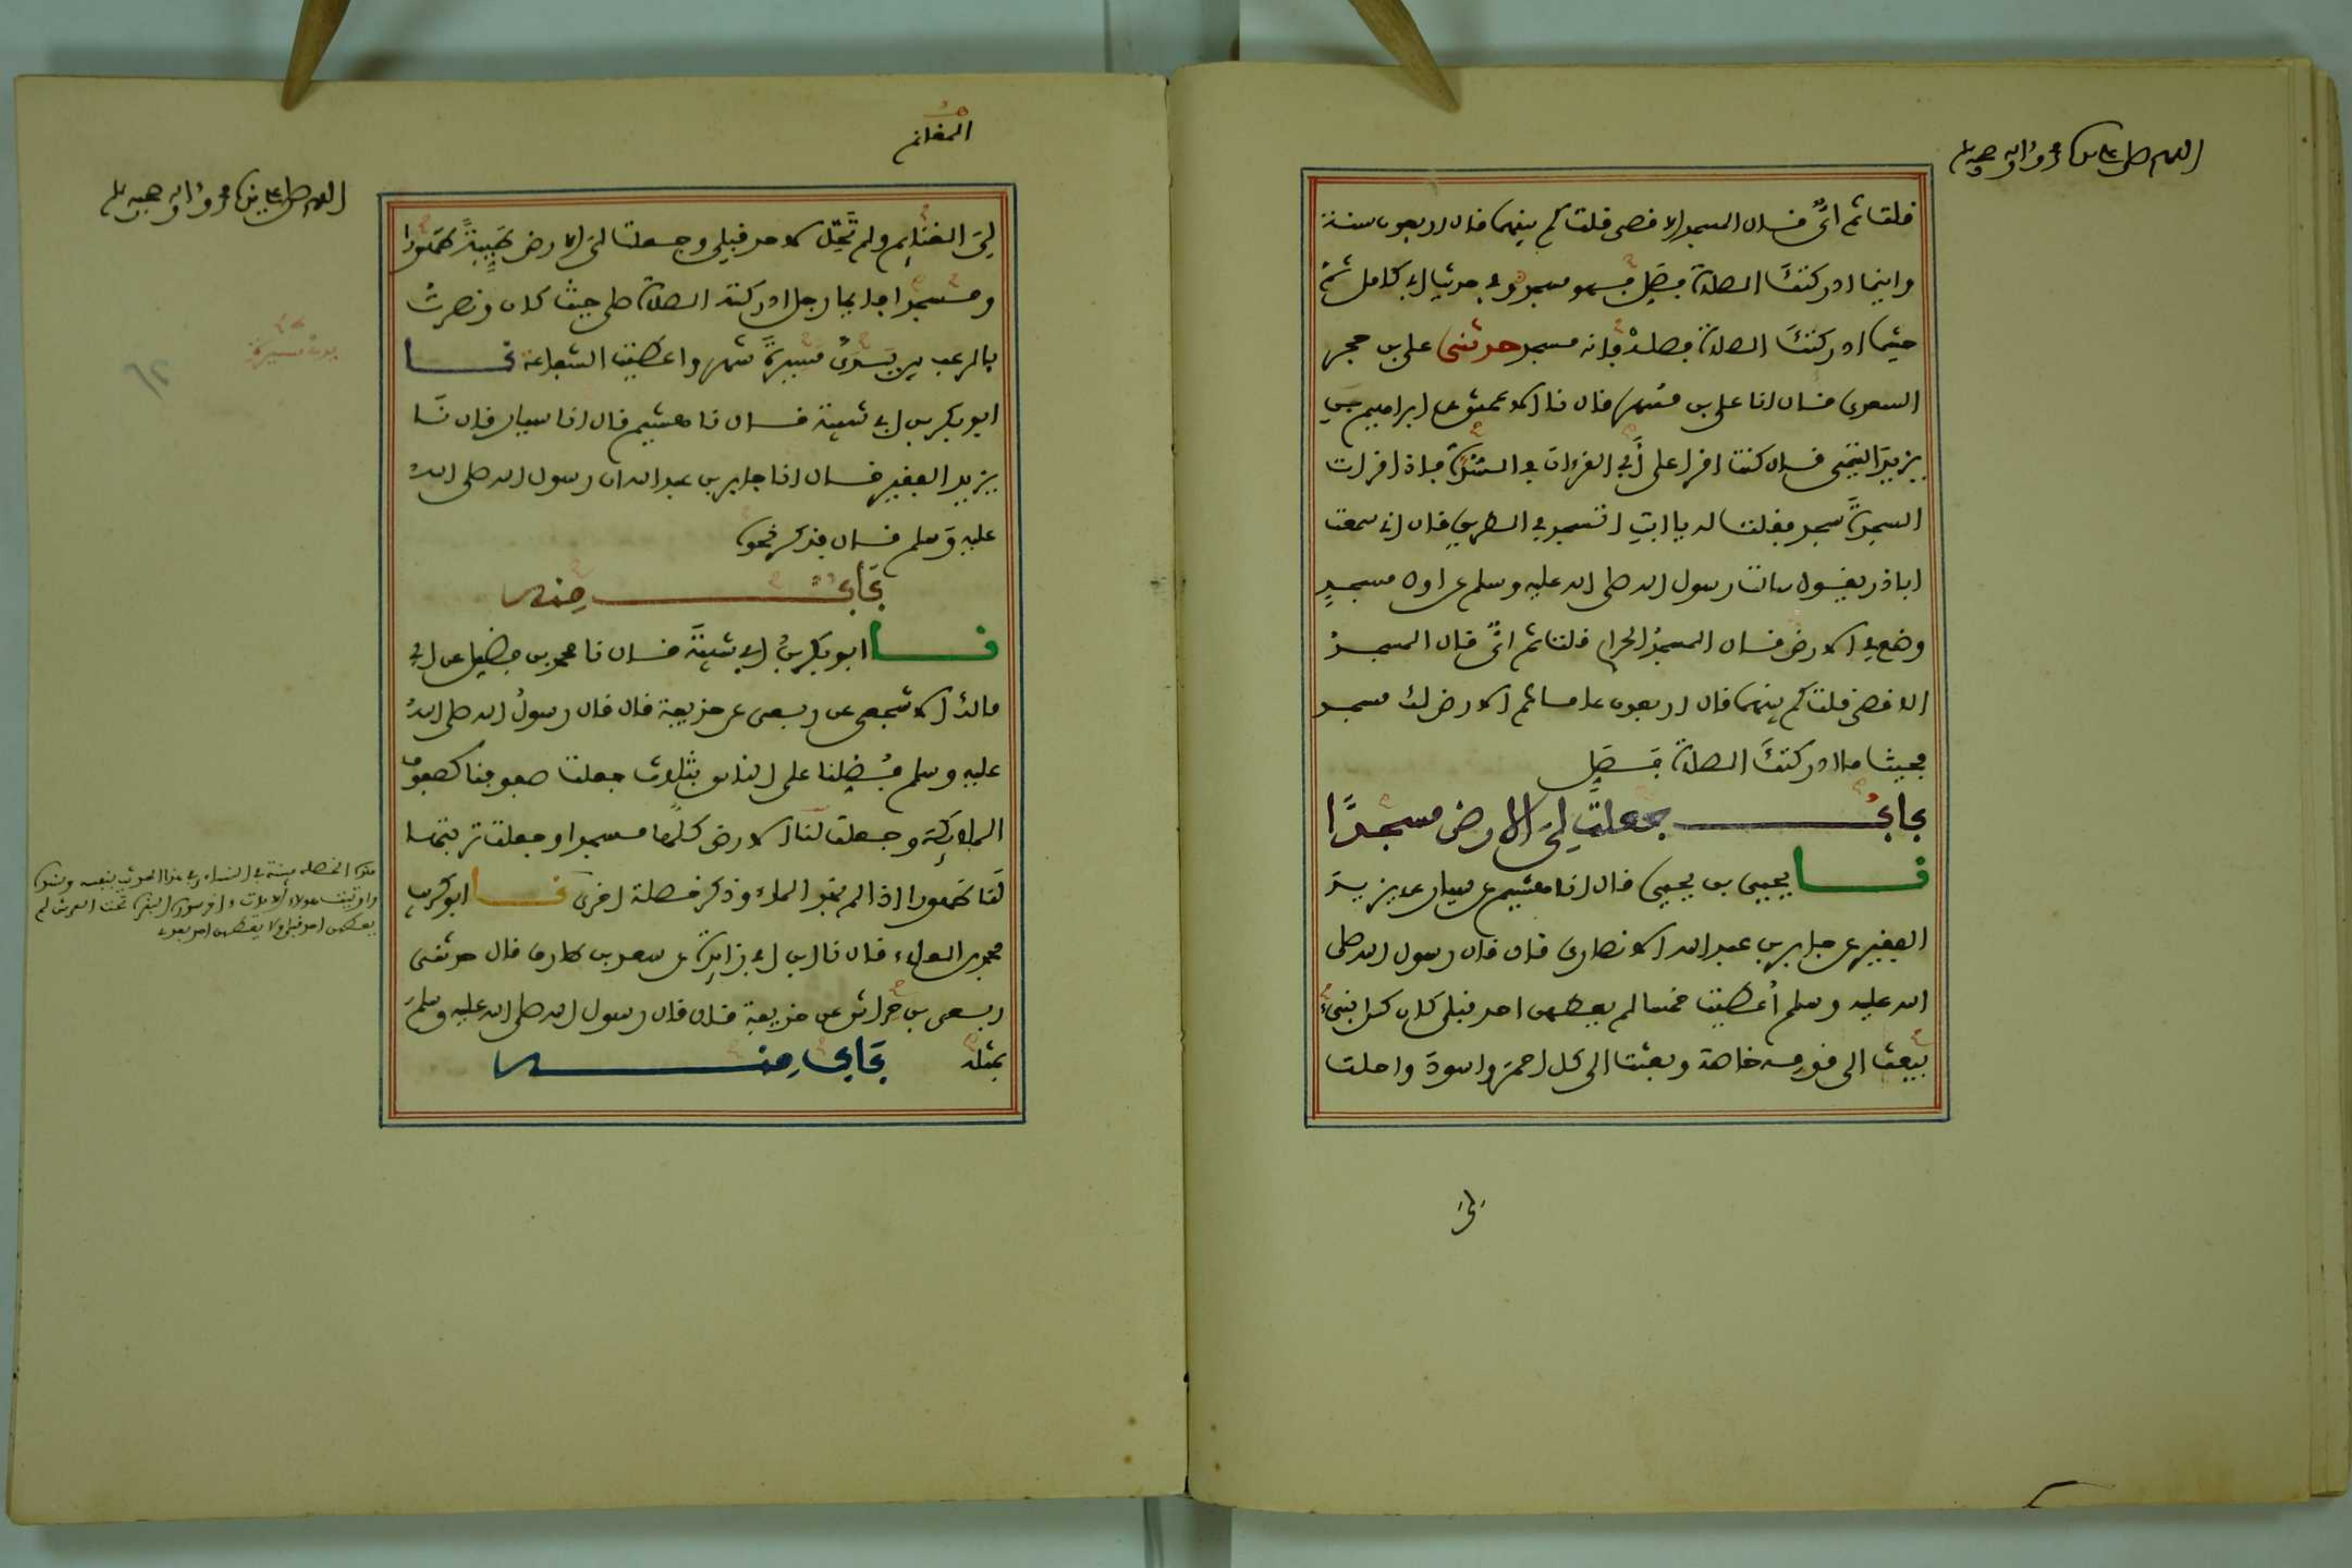 اللهم صل على سيدنا محمد وءاله وصحبه وسلم
قلت ثم أيٌّ قال المسجد الاقصى قلت كم بينهما قال اربعون سنة
واينما ادركتك الصلاة فصَلِّ فهو مسجد وفي حديث ابي كامل ثم
حيثما ادركتكَ الصلاة فصلهْ فإنه مسجد حدثني علي بن حجر
السعدي قال انا علي بن مسهر قال نا الاعمش عن ابراهيم بن
يزيد التيمي قال كنت اقرا على أبي القرءان في السُّدَّة فاذا قرات
السجدةَ سجد فقلت له يا ابتِ اتسجد في الطريق قال اني سمعت
اباذر يقول سالت رسول الله صلى الله عليه وسلم عن اول مسجدٍ
وضع في الارض قال المسجدُ الحرام قلت ثم ايٌّ قال المسجدُ
الاقصى قلت كم بينهما قال اربعون عاما ثم الارض لك مسجد
فحيث ما ادركتكَ الصلاة فَصَلِّ
بابٌ جعلتْ لِيَ الارض مسجدًا
نا يحيى بن يحيى قال انا هشيم عن سيار عن يزيدَ
الفقير عن جابر بن عبد الله الانصاري قال قال رسول الله صلى
الله عليه وسلم أُعطيت خمسا لم يعطهن احد قبلي كان كل نبيءٍ
يبعث الى قومه خاصة وبعثت الى كل احمرَ واسودَ واحلت
لي
المغانم
اللهم صل على سيدنا محمد وءاله وصحبه وسلم
لِيَ الغنايم ولم تَحِلَّ لاحد قبلي وجعلت لي الارض طَيِّبةً طَهورا
ومسجدا فايما رجل ادركته الصلاة صلى حيث كان ونصرتُ
بالرعب بين يَدَيْ مسيرةَ شهر واعطيت الشفاعة نا
ابو بكر بن ابي شيبة قال نا هشيم قال انا سيار قال نَا
يزيد الفقير قال انا جابر بن عبد الله ان رسول الله صلى اللهُ
عليه وسلم قال فذكر نحوه
بَابٌ مِنه
نا ابو بكر بنُ ابي شيبةَ قال نا محمد بن فضيل عن ابي
مالك الاشجعي عن ربعي عن حذيفة قال قال رسولُ الله صلى اللهُ
عليه وسلم فُضِّلنا على الناس بثلاث جعلت صفوفنا كصفوف
الملايكة وجعلت لنا الارض كلُّها مسجدا وجعلت تربتها
لَنا طَهورا اذا لم نجد الماء وذكر خصلة اخرى نا ابو كريب
محمد بن العلاء قال نا ابن ابي زايدة عن سعد بن طارق قال حدثني
ربعي بن حِراش عن حذيفة قال قال رسول الله صلى الله عليه وسلمَ
بمثله بَاب مِنه
يدي مسيرة
٦٢
هذه الخصلة مبينة في النساءي في هذا الحديث بنفسه وهو
واوتيت هؤلاء الايات واخر سورة البقرة تحت العرش لم
يعطهن احد قبلي ولا يعطهن احد بعدي